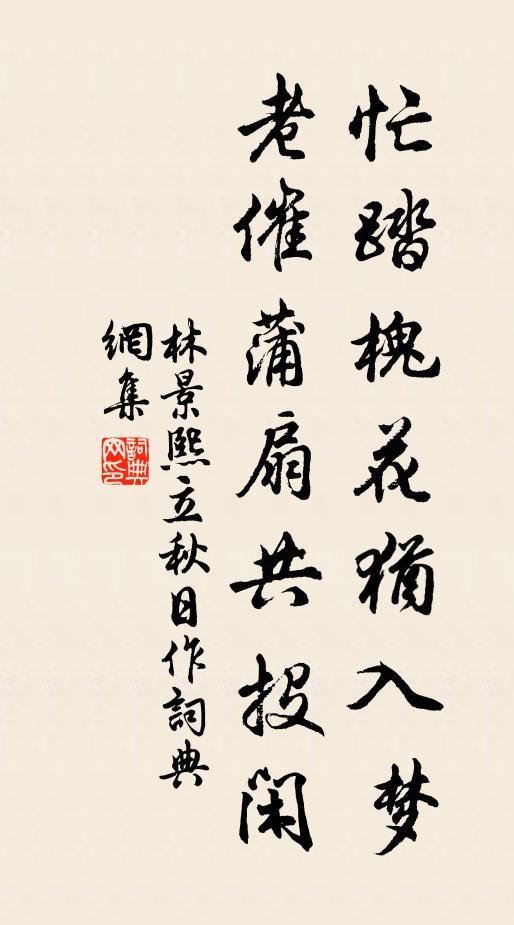 忙踏槐花犹入梦
老催蒲扇共投闲
林景熙立秋日作词典
網集
詞典网印